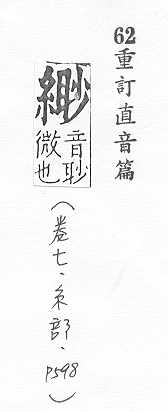 62重訂直音篇
緲
音眇
微也
（卷七、糸部、P598）